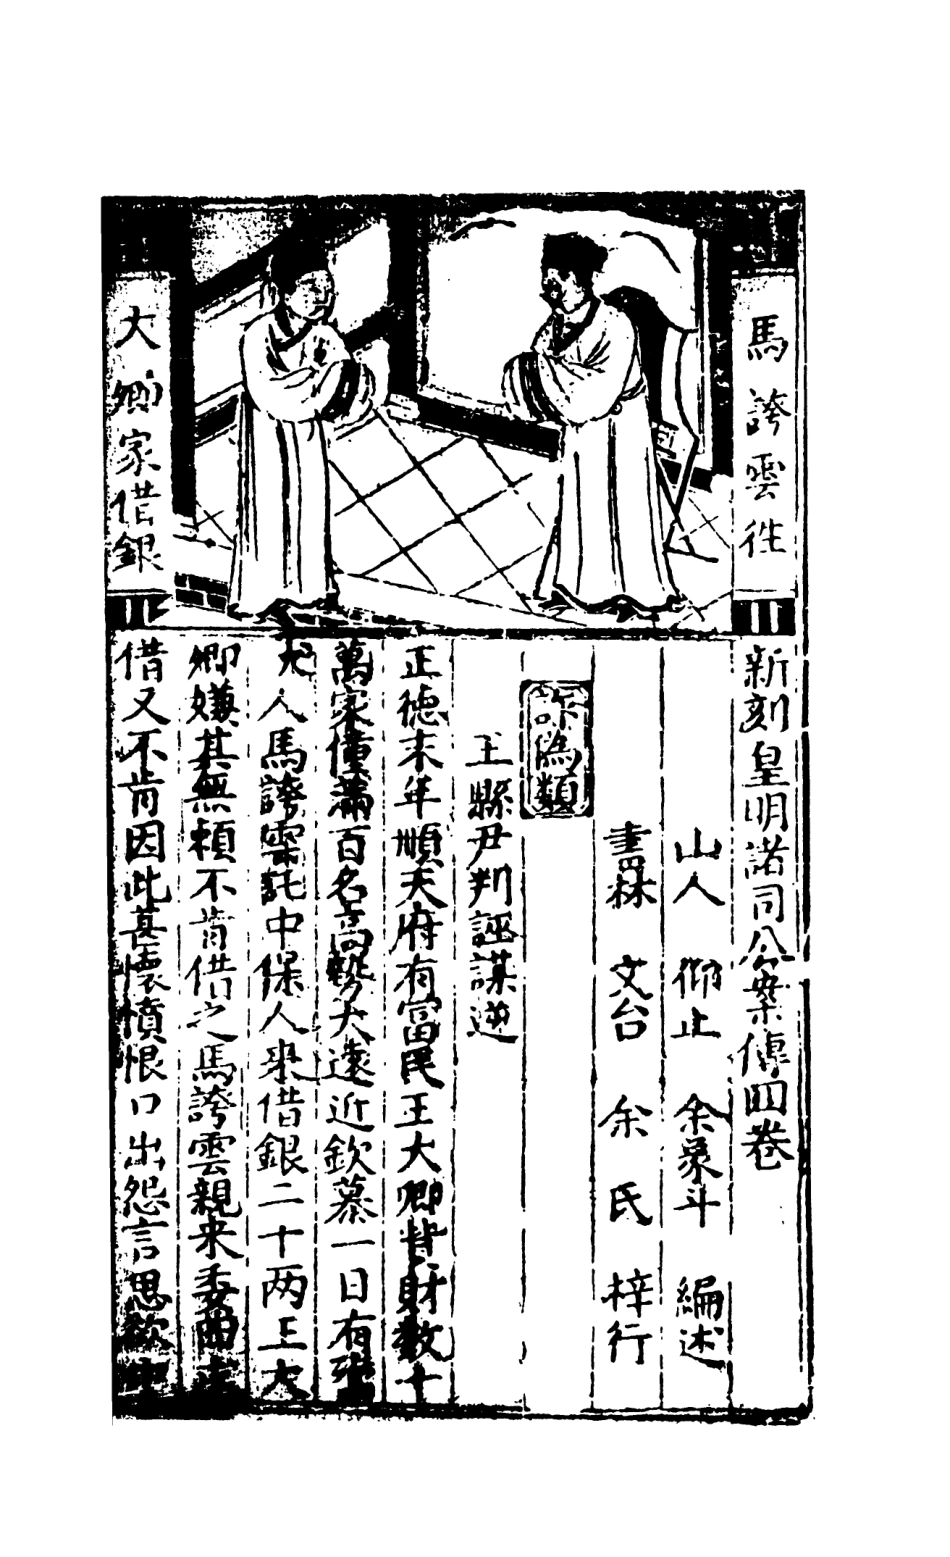 馬誇雲徃
大卿家借銀
新刻皇明諸司公案傳四卷
山人 仰止 余象斗 編述
書林 文台 余氏 梓行
詐偽類
王縣尹判誣謀逆
正德末年順天府有富民王大卿貲財数十
萬家僮滿百名高勢大遠近欽慕一日有
人馬誇雲託中保人来借銀二十两王大
卿嫌其無賴不肯借之馬誇雲親来委曲
借又不肯因此甚懷憤恨口出怨言思欲